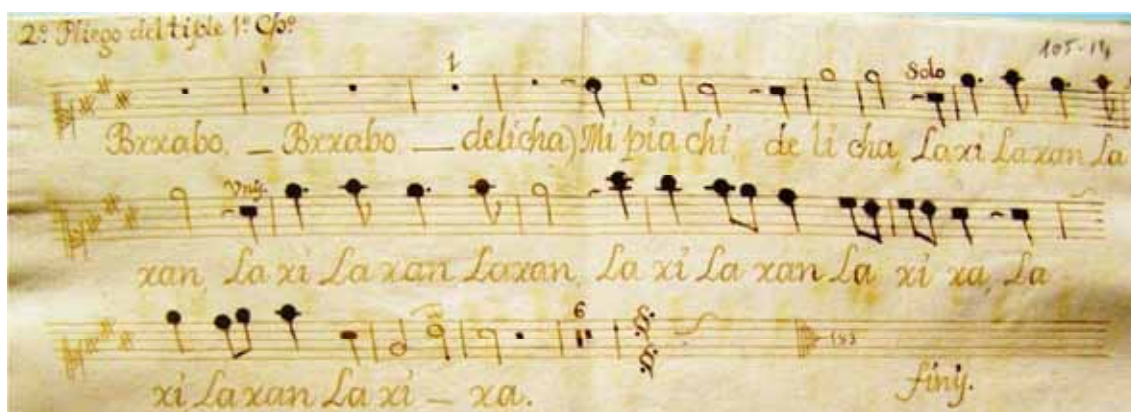 2º Pliego del tiple 1º Chº
105-14
1 1 Solo
Brxabo. _ Brxabo _ delicha) Mi piachi de li cha, La xi La xan La
Vnij.
xan La xi La xan Laxan, La xi La xan La xi xa, La
6
xi La xan La xi _ xa.
finij.